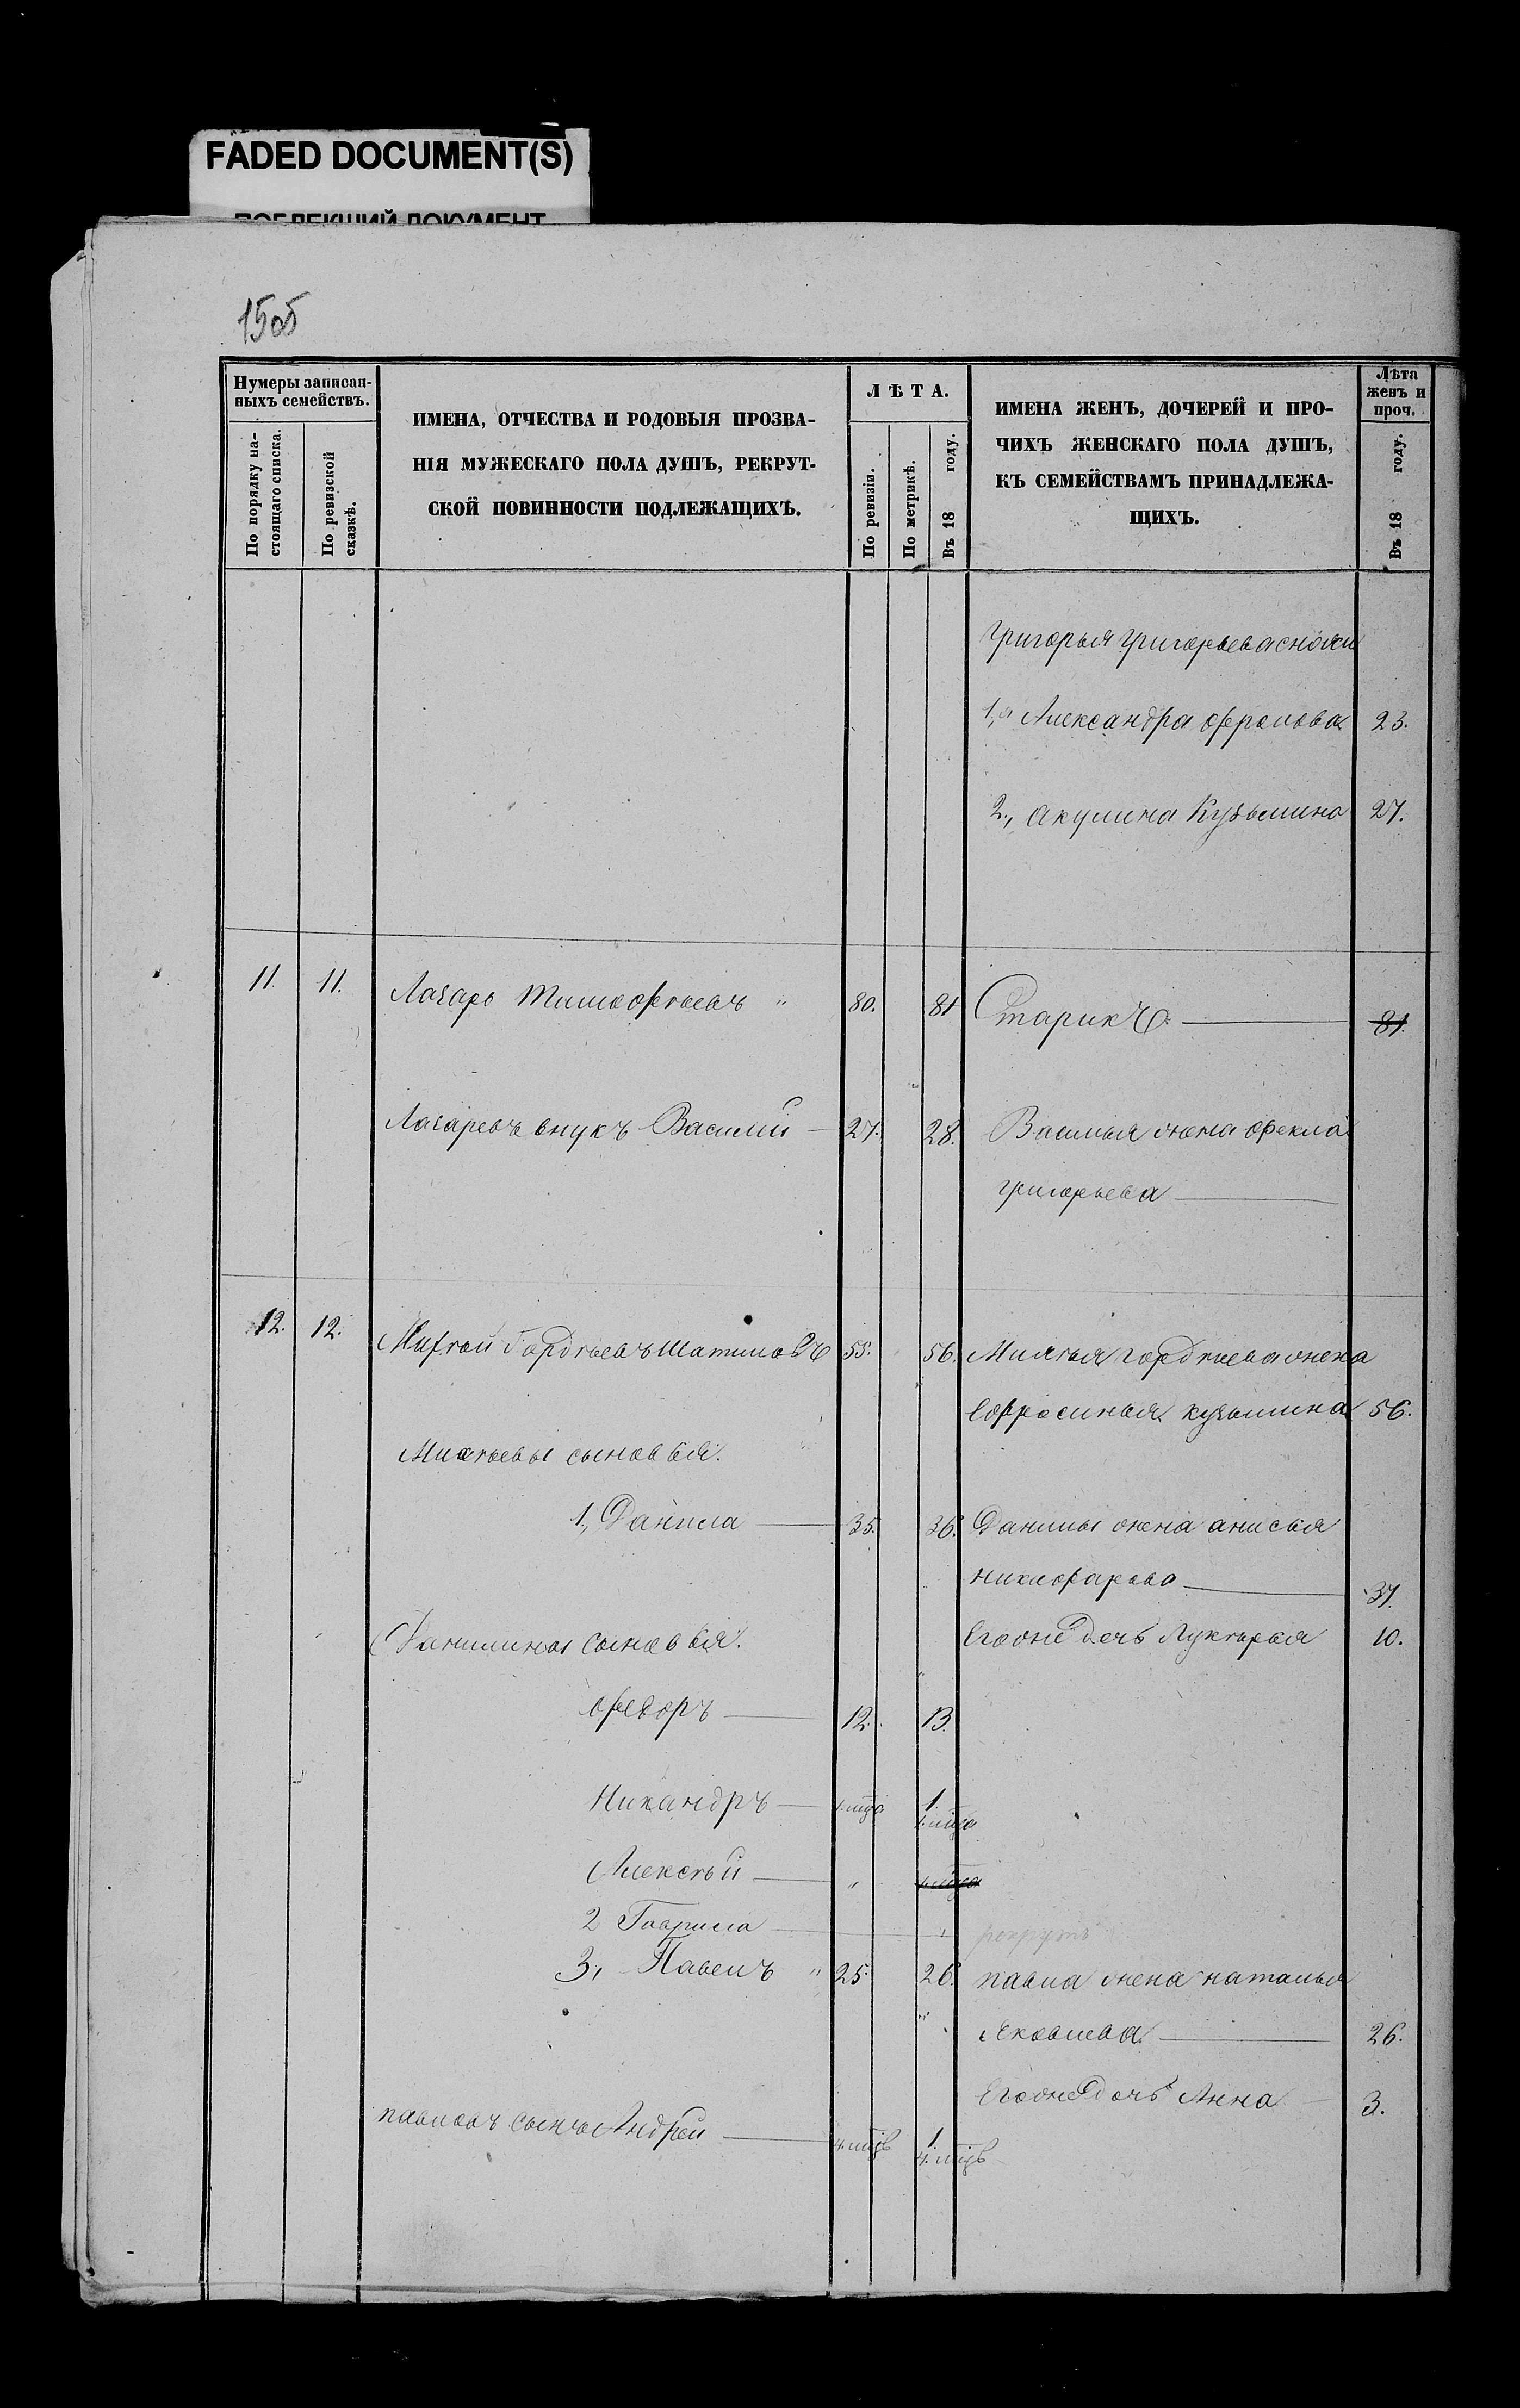 FADED DOCUMENT(S)
ПОБЛЕКШИЙ ДОКУМЕНТ
15об
Нумеры записан-
ныхъ семействъ.
По порядку на-
стоящаго списка.
По ревизской
сказкѣ.
ИМЕНА, ОТЧЕСТВА И РОДОВЫЯ ПРОЗВА-
НІЯ МУЖЕСКАГО ПОЛА ДУШЪ, РЕКРУТ-
СКОЙ ПОВИННОСТИ ПОДЛЕЖАЩИХЪ.
ЛѢТА.
По ревизіи.
По метрикѣ.
Въ 18 году.
ИМЕНА ЖЕНЪ, ДОЧЕРЕЙ И ПРО-
ЧИХЪ ЖЕНСКАГО ПОЛА ДУШЪ,
КЪ СЕМЕЙСТВАМЪ ПРИНАДЛЕЖА-
ЩИХЪ.
Лѣта
женъ и
проч.
Въ 18 году.
Григорья Григорьева снохи
1, Александра Фролова 23.
2., Акулина Кузьмина 27.
11. 11. Лазарь Тимофѣевъ " 80. 81 Старикъ. 81.
Лазаревъ внукъ Василий 27. 28. Василья жена Фекла
Григорьева
12. 12. Михѣй Гордѣевъ Шатиловъ 55. 56. Михѣя Гордѣева жена
Ефросинья Кузьмина 56.
Михѣевы сыновья.
1, Данила 35. 36. Данилы жена Анисья
Никифарова 37.
Данилины сыновья. Егоже дочь Лукѣрья 10.
Федоръ 12. 13.
Никандръ 1. мца 1.
1. мца
Алексѣй "
2 Гаврила рекрутъ
3, Павелъ " 25. 26. Павла жена Наталья
Яковлева 26.
Егоже дочь Анна 3.
Павловъ сынъ Андрей 4. мцв 1.
4. мцв